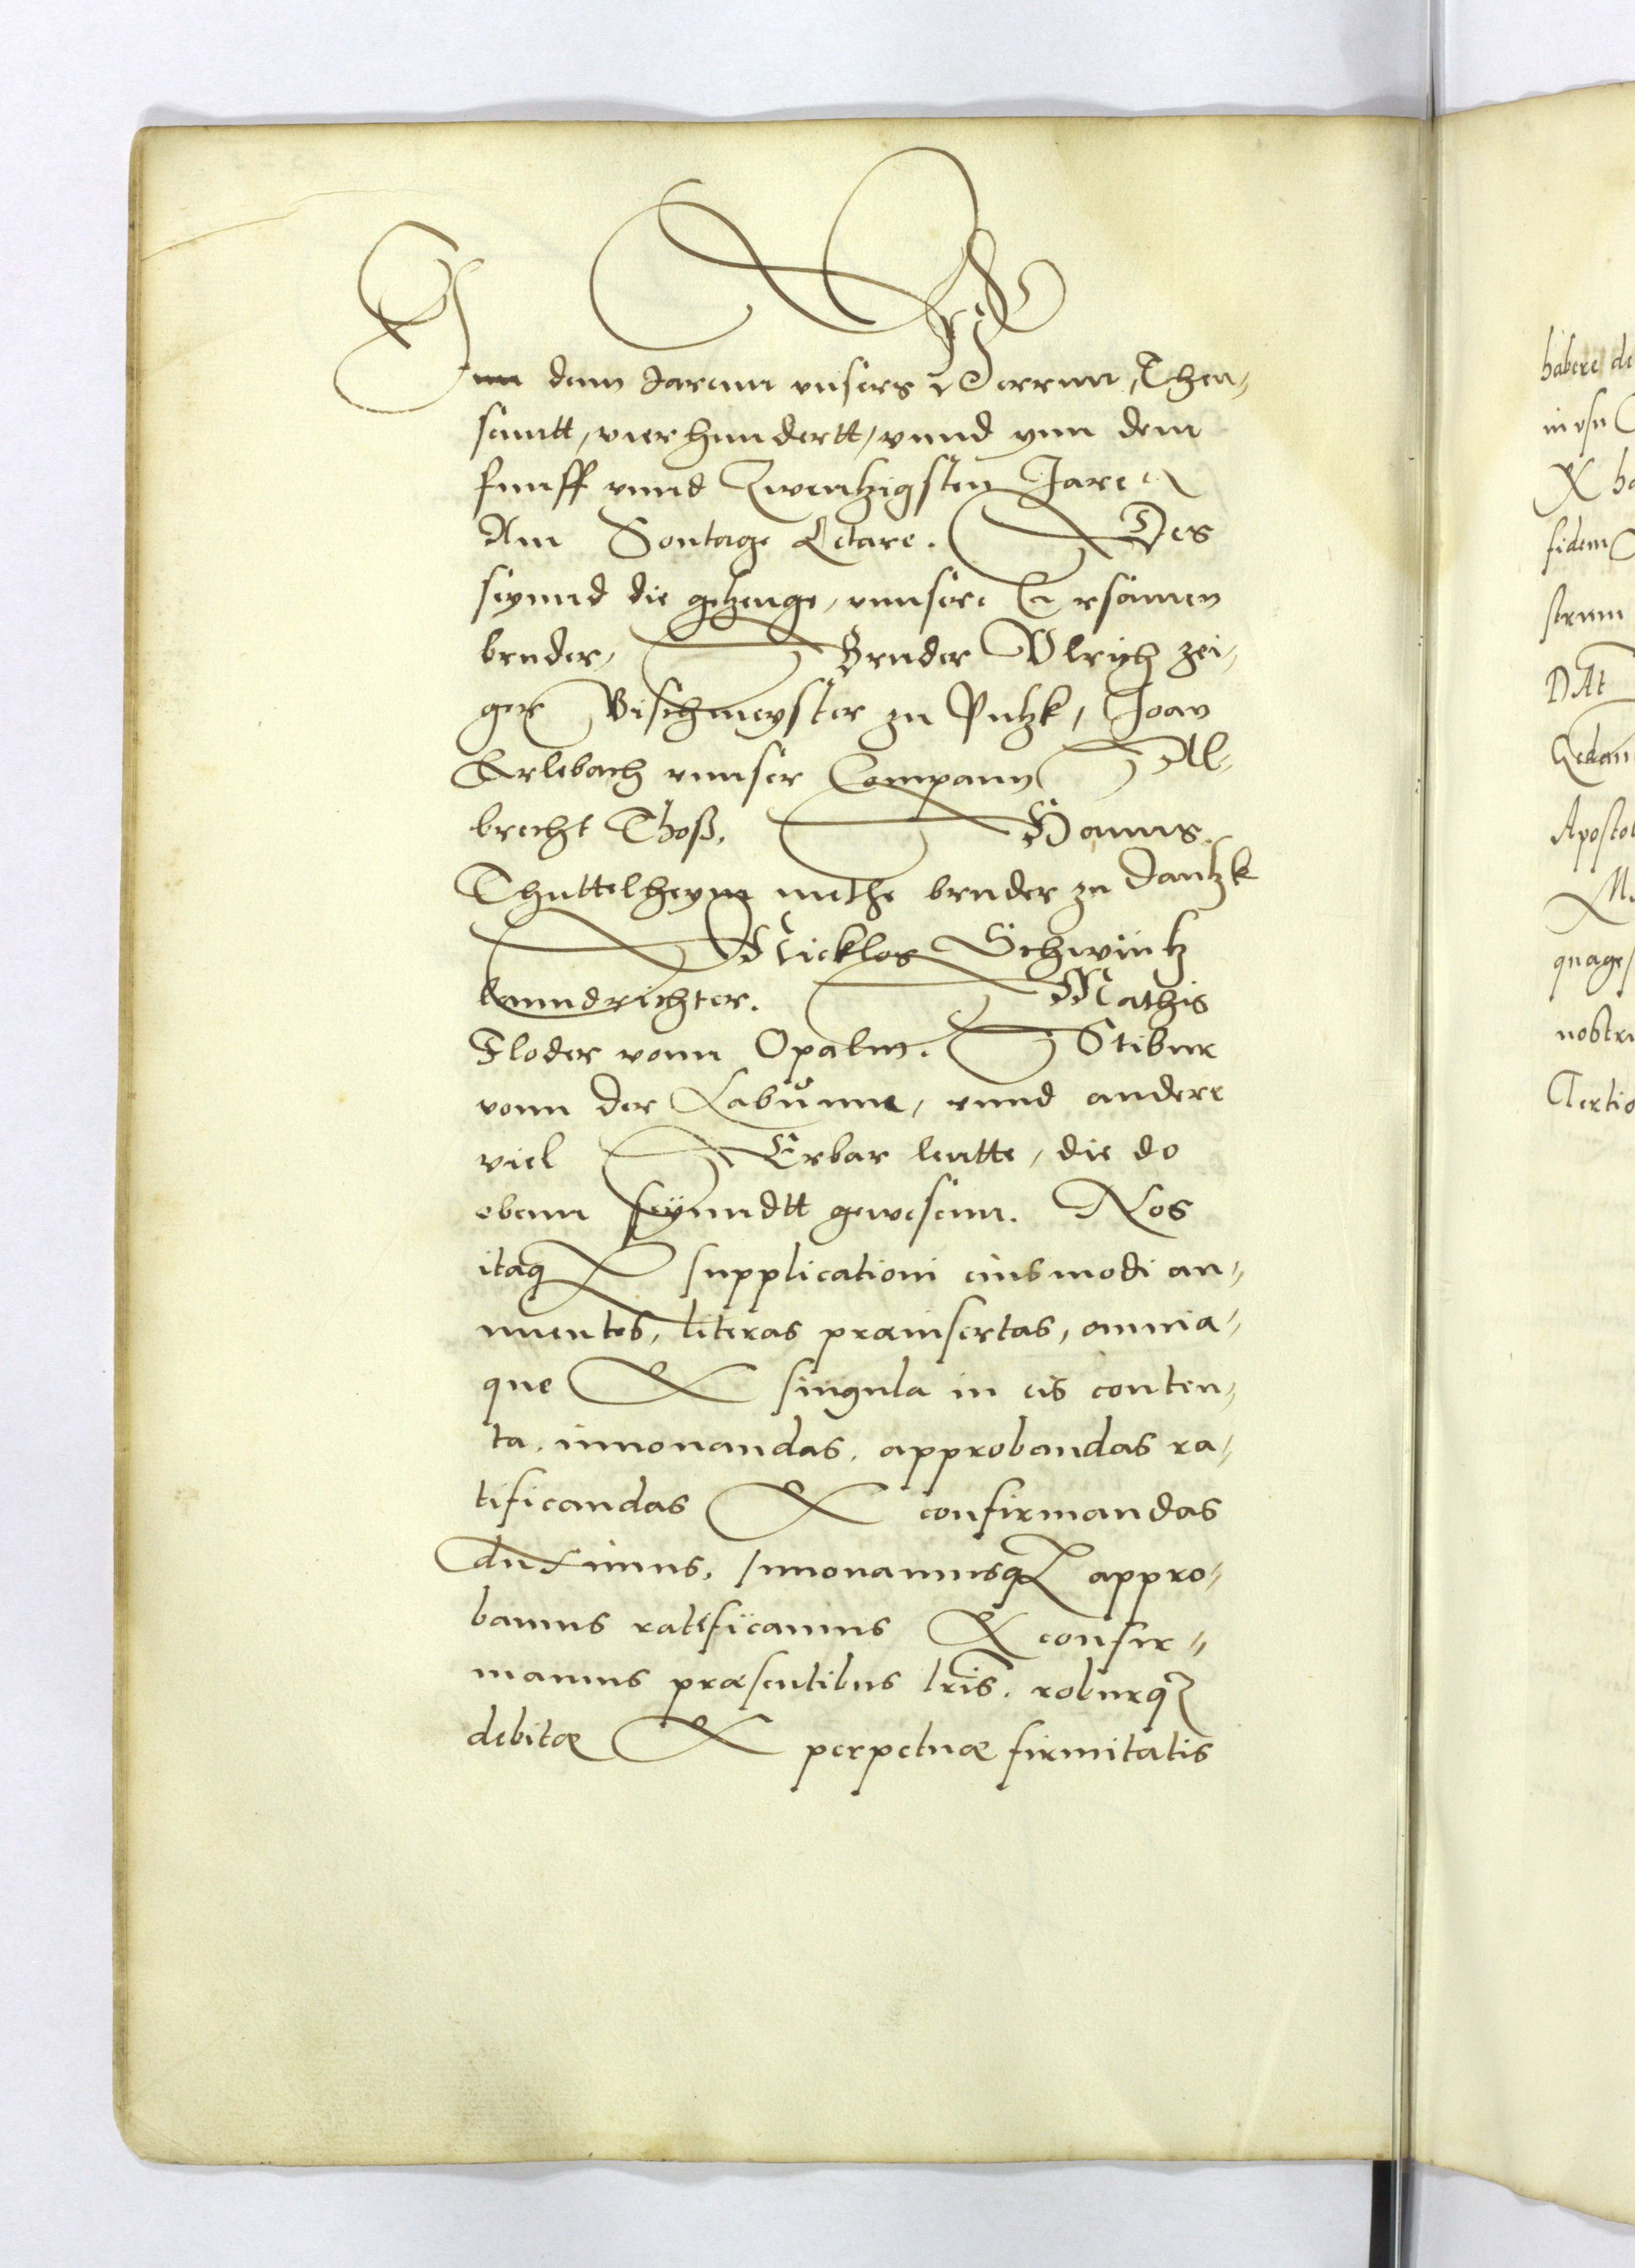 Inn denn Jarenn unsers Herrnn, Theu„
sentt, vier hundertt, vnnd ynn dem
funff vnnd Zwentzigsten Jare
Am Sontage Letare. Des
seynnd die getzeuge, vnnsere Ersamen
bruder, Bruder Vlrich zei„
ger Vischmeyster zu Putzk, Joan
Erlebach vnnser Compann Al„
brecht Thoß, Hanns
Thuttelheym methe bruder zu Dantzk
Nicklos Schwintz
lanndrichter. Mathis
Floder vonn Opalin. Stibur
vonn der Labunne, vnnd andere
viel Erbar leutte, die do
obenn seynndtt gewesenn. Nos
itaq3 supplicationi eiusmodi an„
nuentes, literas præinsertas, omnia„
que & singula in eis conten„
ta, innouandas, approbandas ra„
tificandas & confirmandas
duximus, Innouamusq3 appro„
bamus ratificamus & confir„
mamus præsentibus lris, roburq3
debitæ & perpetuæ firmitatis
habere de
in usu
& ha
fidem
strum
DAt
Gedan
Apostol
M
quages
nostri
Tertio